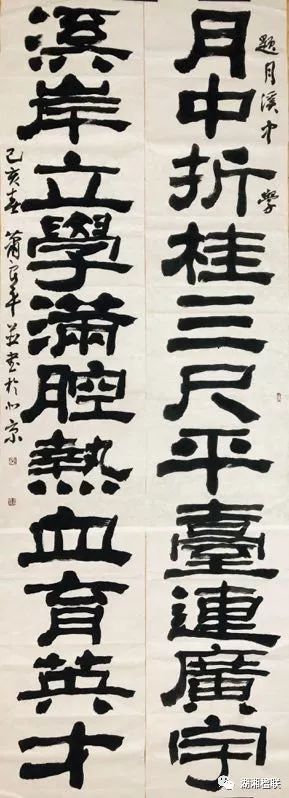 題月溪中學
月中折桂三尺平臺連廣宇
溪岸立學滿腔熱血育英才
己亥春蕭平並書於北京
湖湘楹联